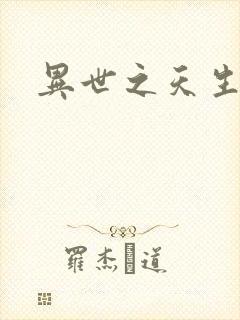 異世之天生
羅杰 道